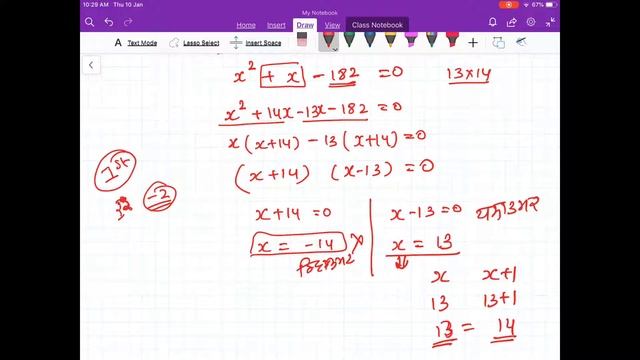 10:29 AM Thu 10 Jan
67%
My Notebook
Home Insert Draw View Class Notebook
Text Mode Lasso Select Insert Space
x² + x - 182 = 0 13×14
x² + 14x - 13x - 182 = 0
x (x+14) - 13 (x+14) = 0
(x+14) (x-13) = 0
1st
-2
x+14 = 0
x = -14
x-13 = 0
x = 13
x x+1
13 13+1
13 = 14